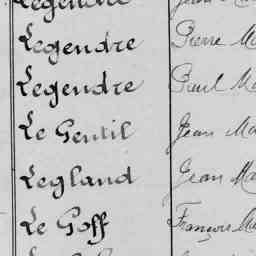 Legendre
Legendre Pierre Ma
Legendre Paul Ma
Le Gentil Jean Ma
Legland Jean Ma
Le Goff François Ma